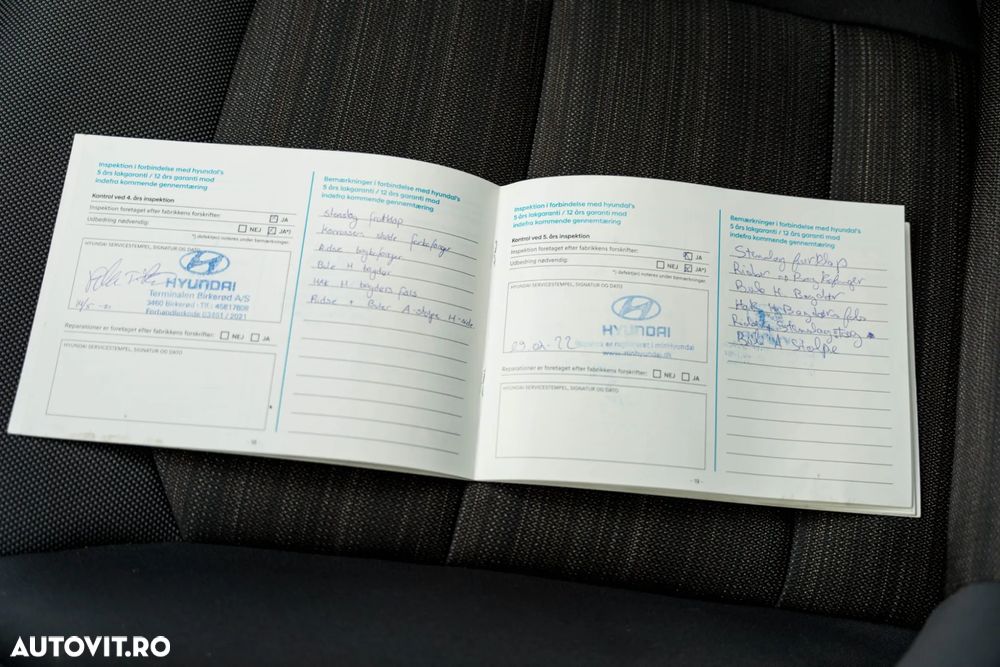 Inspektion i forbindelse med hyundai's
5 års lakgaranti / 12 års garanti mod
indefra kommende gennemtæring
Kontrol ved 4. års inspektion
Inspektion foretaget efter fabrikkens forskrifter: JA
Udbedring nødvendig: NEJ JA*)
*) defekt(er) noteres under bemærkninger.
HYUNDAI SERVICESTEMPEL, SIGNATUR OG DATO
HYUNDAI
Terminalen Birkerød A/S
3460 Birkerød - Tlf.: 45817808
Forhandlerkode 03451 / 2021
Reparationer er foretaget efter fabrikkens forskrifter: NEJ JA
HYUNDAI SERVICESTEMPEL, SIGNATUR OG DATO
- 18 -
Bemærkninger i forbindelse med hyundai's
5 års lakgaranti / 12 års garanti mod
indefra kommende gennemtæring
stenslag frontklap
Ridse bagkofanger
Bule H bagdør
Hak H bagdørs fals
Ridse + Buler A-stolpe H-side
Inspektion i forbindelse med hyundai's
5 års lakgaranti / 12 års garanti mod
indefra kommende gennemtæring
Kontrol ved 5. års inspektion
Inspektion foretaget efter fabrikkens forskrifter: JA
Udbedring nødvendig: NEJ JA*)
*) defekt(er) noteres under bemærkninger.
HYUNDAI SERVICESTEMPEL, SIGNATUR OG DATO
HYUNDAI
er registreret i minHyundai
www.minhyundai.dk
Reparationer er foretaget efter fabrikkens forskrifter: NEJ JA
HYUNDAI SERVICESTEMPEL, SIGNATUR OG DATO
- 19 -
Bemærkninger i forbindelse med hyundai's
5 års lakgaranti / 12 års garanti mod
indefra kommende gennemtæring
Stenslag
Bule H Bagdør
Hak H Bagdørs fals
Bule A Stolpe
AUTOVIT.RO